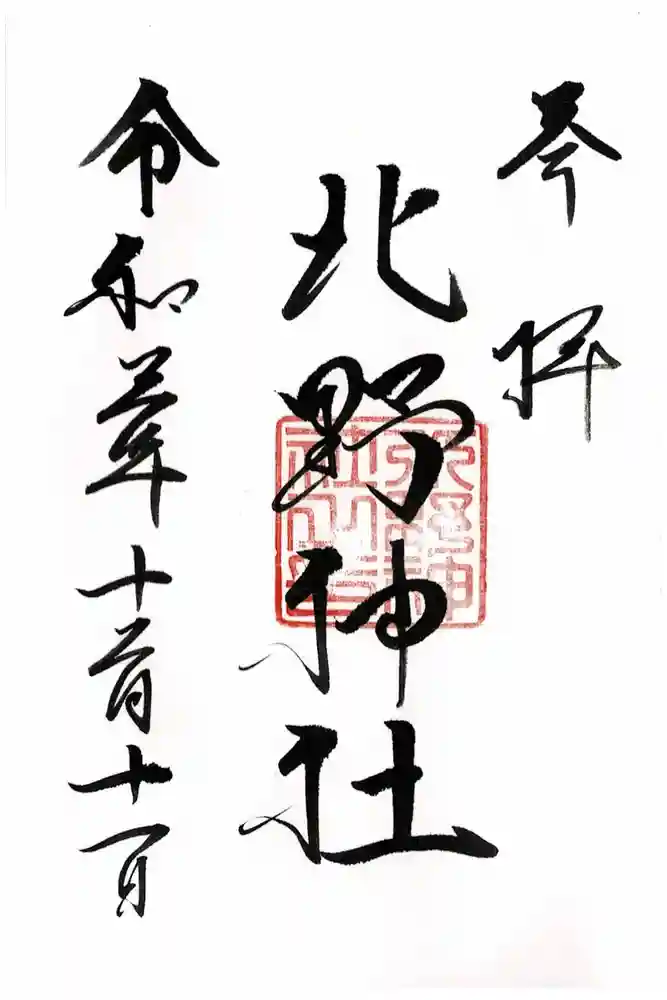 奉拝
北野神社
令和三年十二月十一日